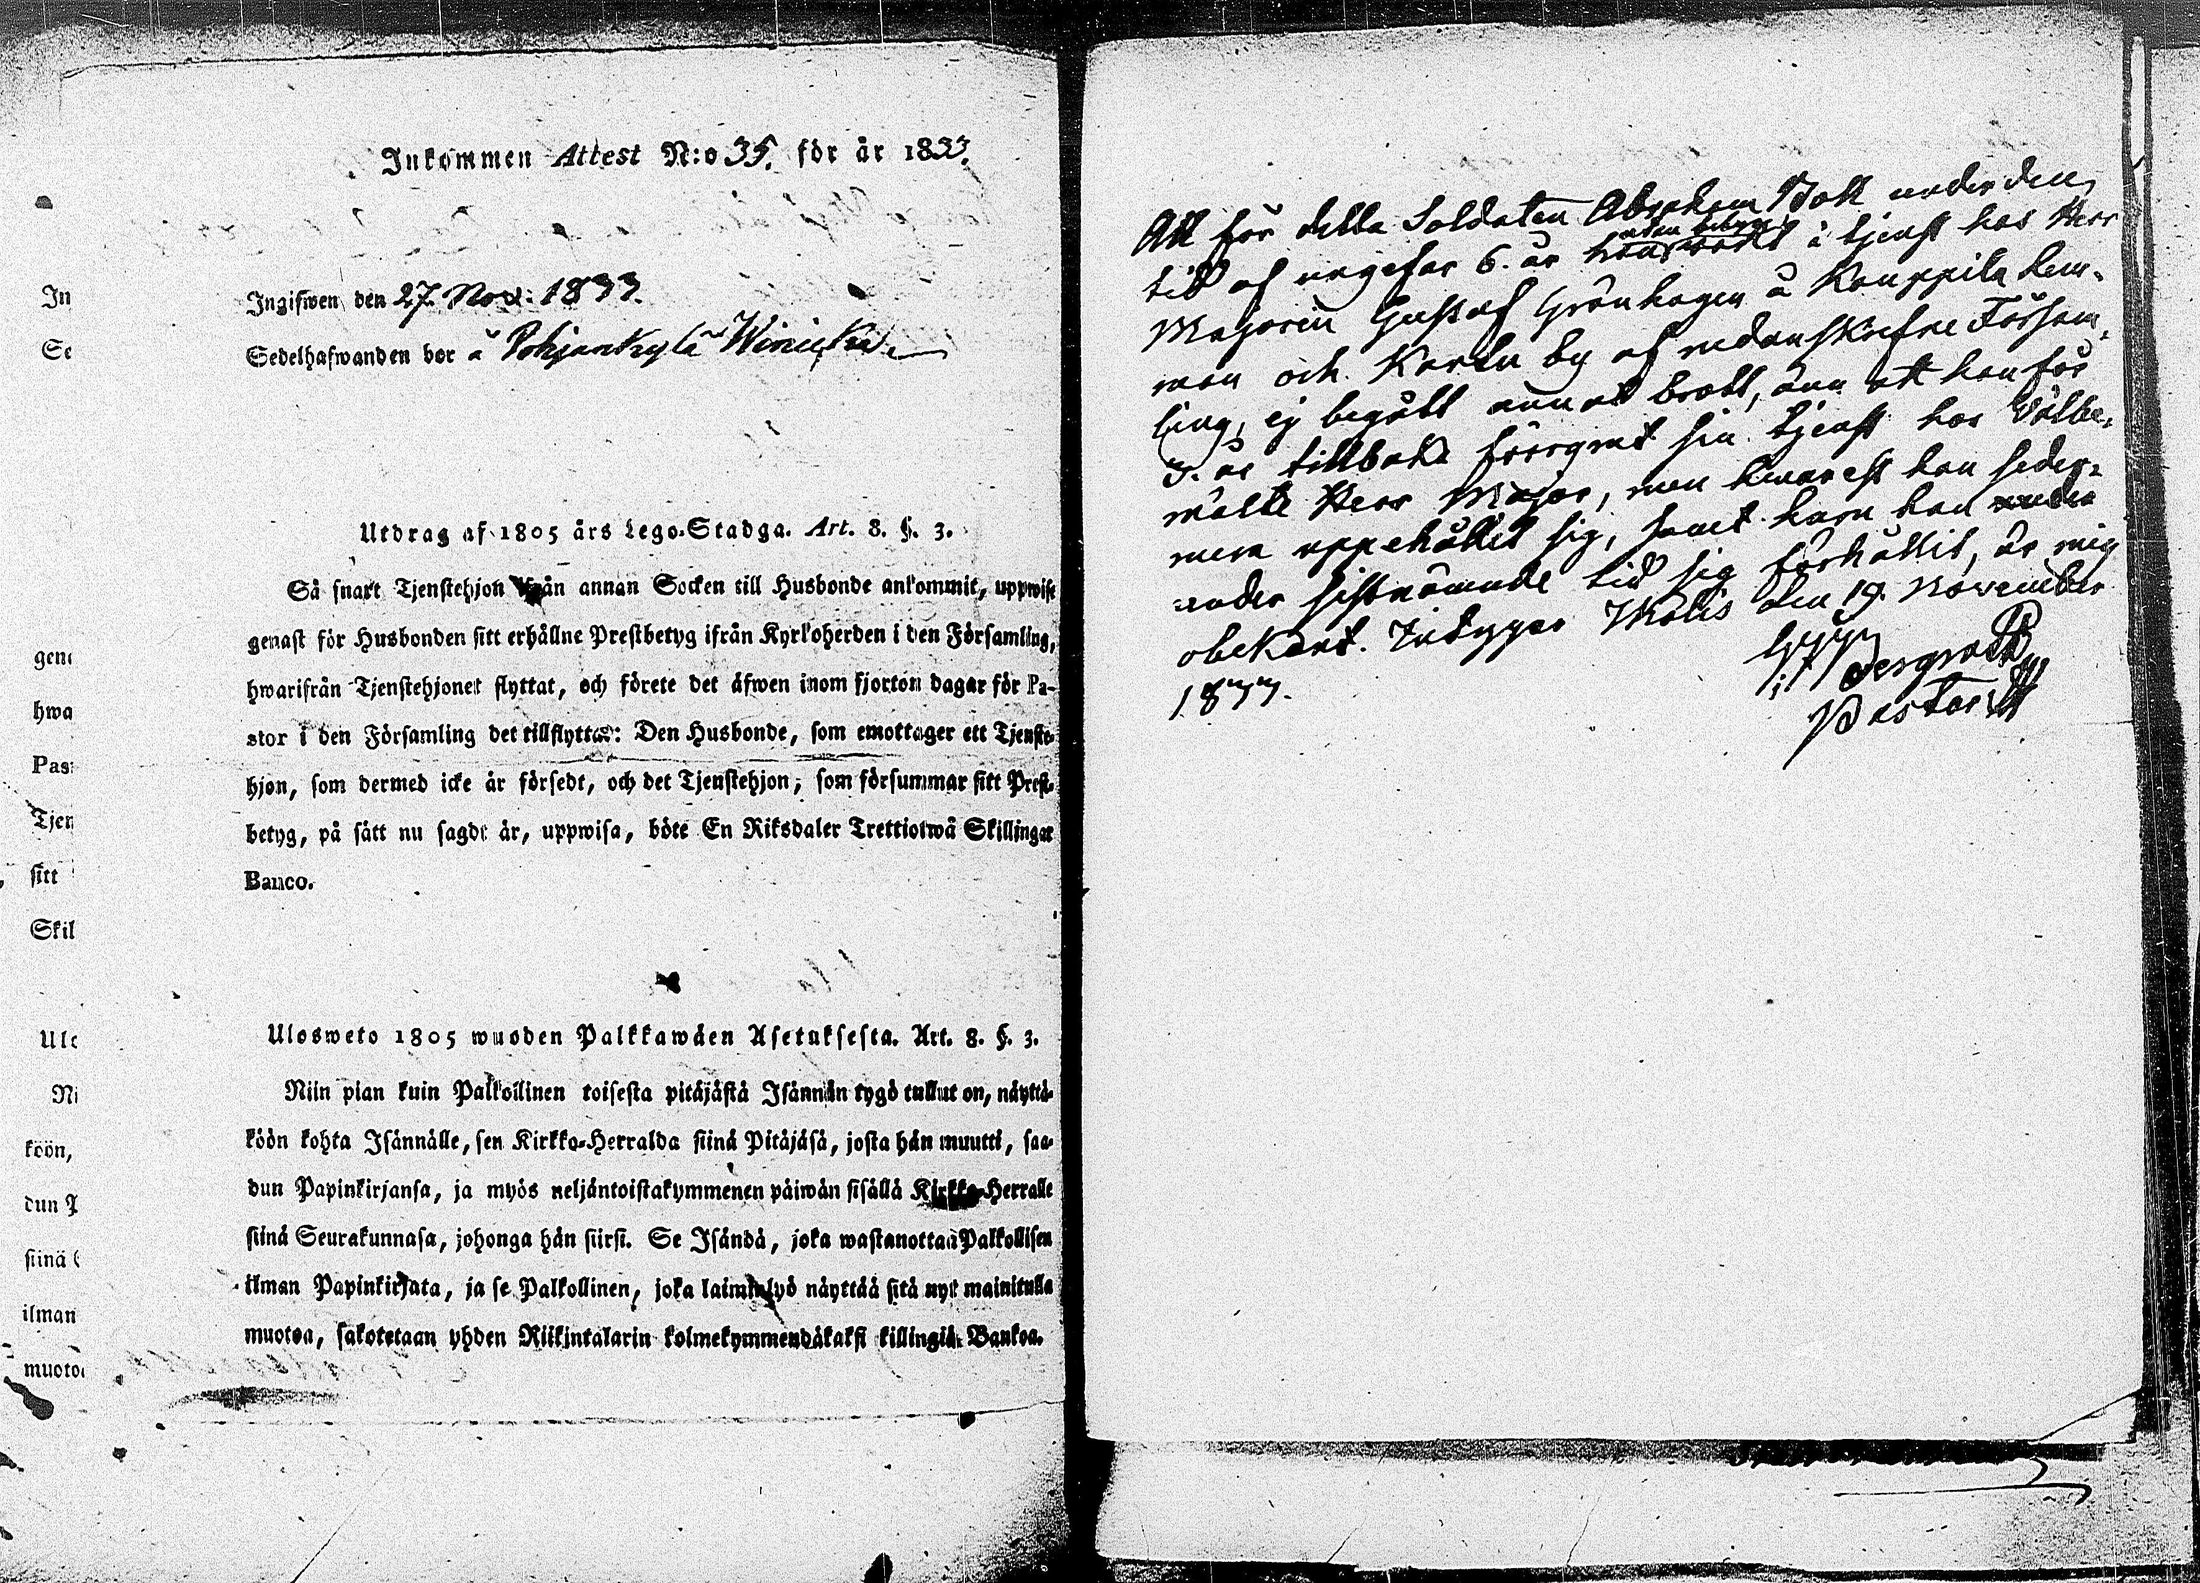 Inkommen Attest N:o 35. för år 1833.
Ingifwen den 27. Nov: 1833.
Sedelhafwanden bor å Pohjankylä
Utdrag af 1805 års Lego-Stadga. Art. 8. §. 3.
Så snart Tjenstehjon ifrån annan Socken till Husbonde ankommit, uppwise
genast för Husbonden sitt erhållne Prestbetyg ifrån Kyrkoherden i den Församling,
hwarifrån Tjenstehjonet flyttat, och förete det äfwen inom fjorton dagar för Pa-
stor i den Församling det tillflyttar: Den Husbonde, som emottager ett Tjenste-
hjon, som dermed icke är försedt, och det Tjenstehjon, som försummar sitt Prest-
betyg, på sätt nu sagdt är, uppwisa, böte En Riksdaler Trettiotwå Skillingar
Banco.
Ulosweto 1805 wuoden Palkkawäen Asetuksesta. Art. 8. §. 3.
Niin pian kuin Palkollinen toisesta pitäjästä Isännän tygö tullut on, näyttä-
köön kohta Isännälle, sen Kirkko-Herralda siinä Pitäjäsä, josta hän muutti, saa-
dun Papinkirjansa, ja myös neljäntoistakymmenen päiwän sisällä Kirkko-Herralle
siinä Seurakunnasa, johonga hän siirsi. Se Isändä, joka wastanottaa Palkollisen
ilman Papinkirjata, ja se Palkollinen, joka laiminlyö näyttää sitä nyt mainitulla
muotoa, sakotetaan yhden Riikintalarin kolmekymmendäkaksi killingiä Bankoa.
In
Se
gena
hwa
Pas
Tjen
sitt
Skil
Ulo
Ni
köön,
dun P
siinä
ilman
muoto
Att för detta Soldaten Abraham Bolt under den
tid af ungefär 6. år han i tjenst hos Herr
Majoren Gustaf Grönhagen å Kauppila hem-
man och Kartu by af nedanskrefne Försam-
ling, ej begått annat brott, änn att han för
3. år tillbaka förrymt sin tjenst hos Välbe-
mälte Herr Major, men hwarest han seder-
mera uppehållit sig, samt huru han
under sistnämnde tid sig förhållit, är mig
obekant. Intygar Thölis den 19. November
1833.
Pastor